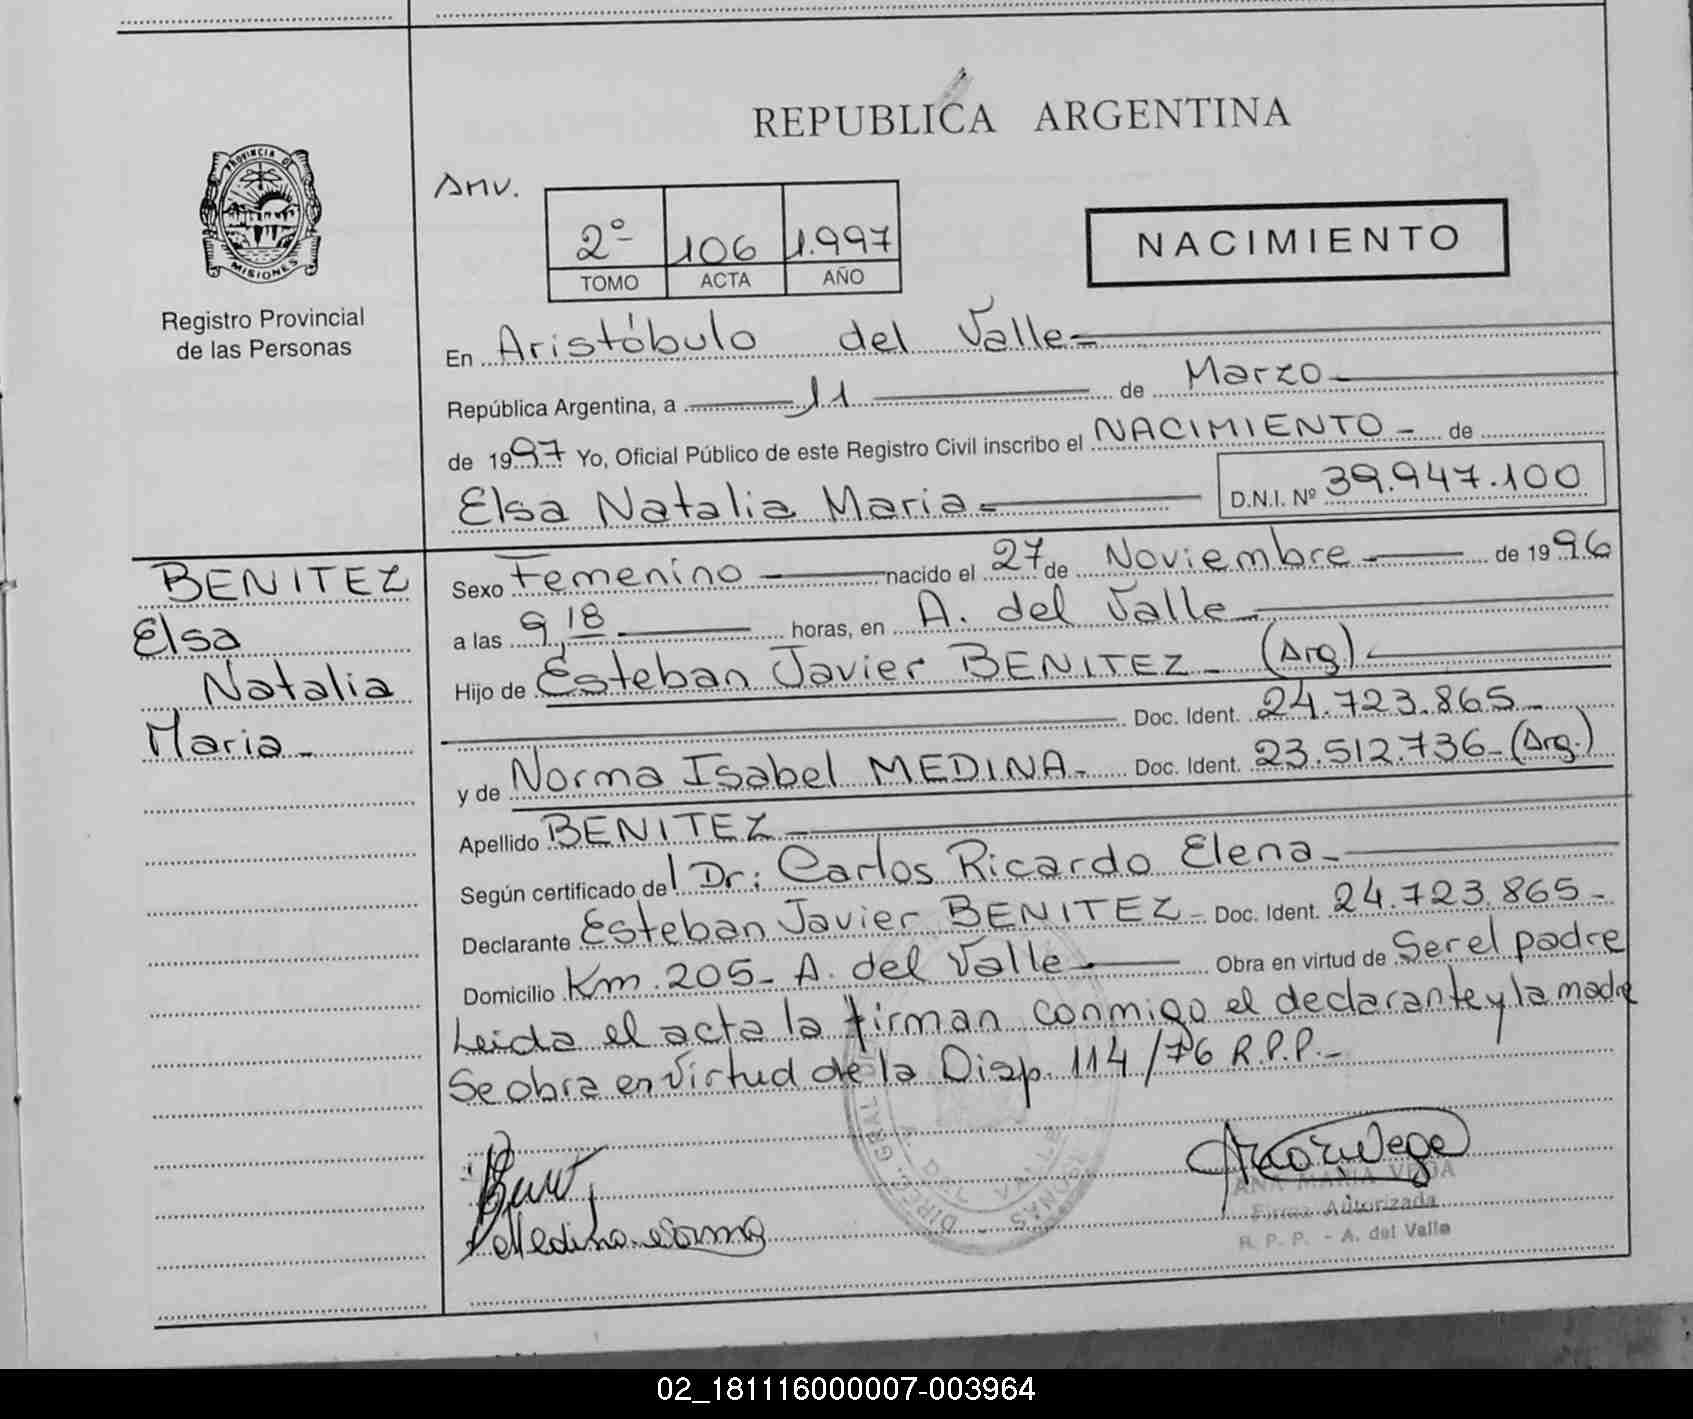 REPUBLICA ARGENTINA
PROVINCIA D
MISIONES
Registro Provincial
de las Personas
2º 106 1.997
TOMO ACTA AÑO
NACIMIENTO
En Aristóbulo del Valle
República Argentina, a 11 de Marzo
de 1997 Yo, Oficial Público de este Registro Civil inscribo el NACIMIENTO - de
Elsa Natalia Maria D.N.I. Nº 39.947.100
BENITEZ
Elsa
Natalia
Maria
Sexo Femenino nacido el 27 de Noviembre de 1996
a las 9,18 horas, en A. del Valle
Hijo de Esteban Javier BENITEZ - (Arg)
Doc. Ident. 24.723.865
y de Norma Isabel MEDINA - Doc. Ident. 23.512.736 - (Arg.)
Apellido BENITEZ
Según certificado del Dr: Carlos Ricardo Elena
Declarante Esteban Javier BENITEZ - Doc. Ident. 24.723.865 -
Domicilio Km. 205 - A. del Valle Obra en virtud de Ser el padre
Leida el acta la firman conmigo el declarante y la madre
Se obra en virtud de la Disp. 114/76 R.P.P. -
Medina Norma
ANA MARIA VEGA
Firma Autorizada
R. P. P. - A. del Valle
02_181116000007-003964